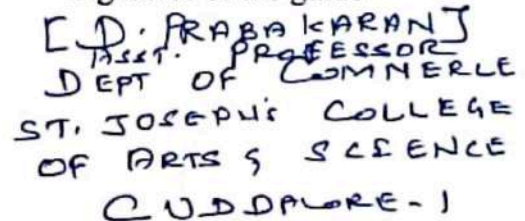 [D. PRABAKARAN]
ASST. PROFESSOR
DEPT OF COMMERCE
ST. JOSEPH'S COLLEGE
OF ARTS & SCIENCE
CUDDALORE-1